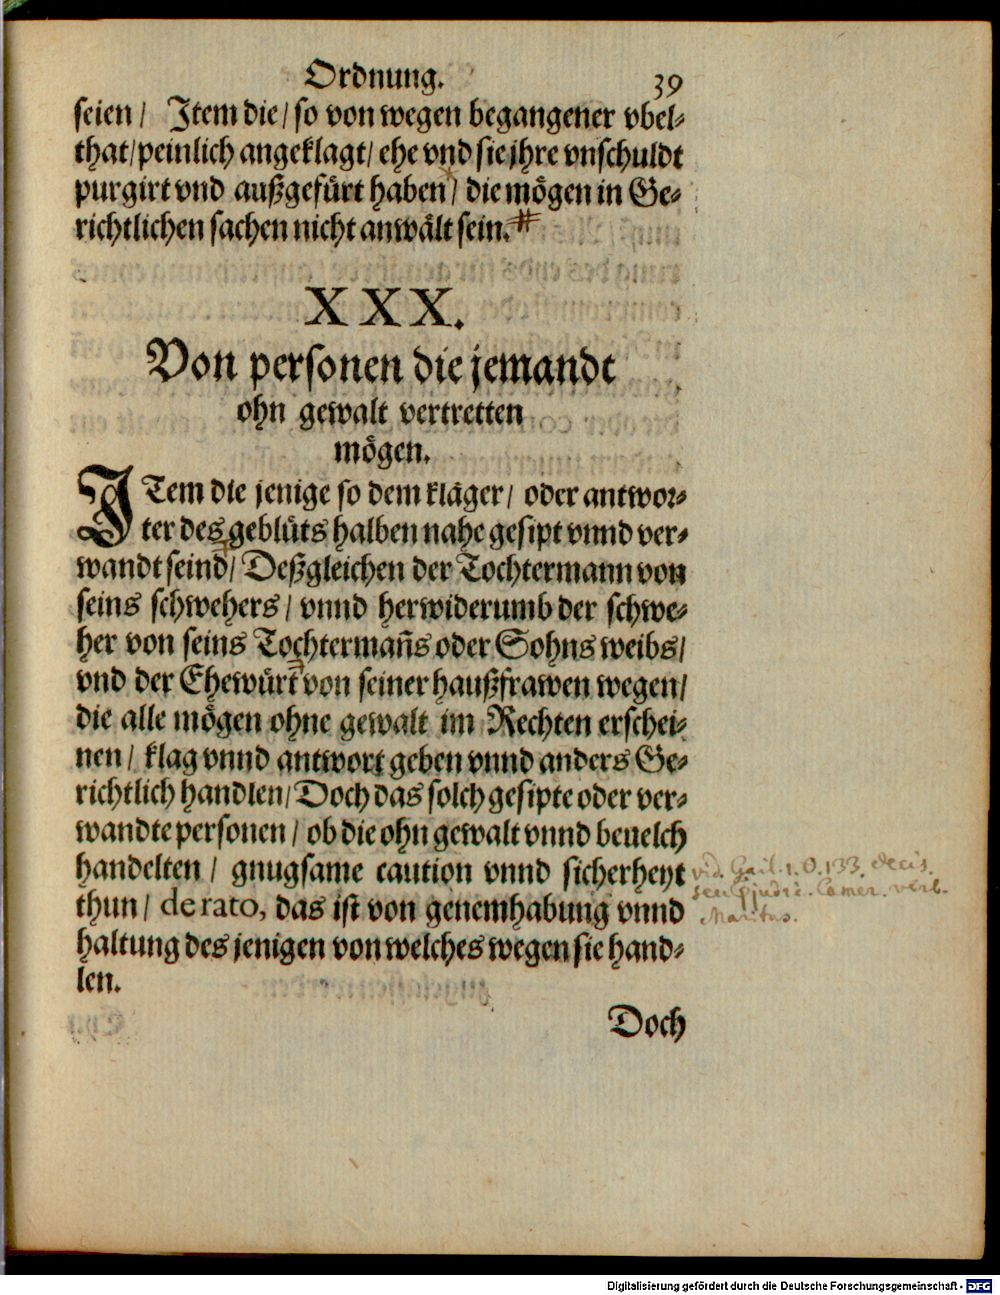 Ordnung. 39
seien / Item die / so von wegen begangener vbel-
that / peinlich angeklagt / ehe vnd sie jhre vnschuldt
purgirt vnd außgefürt haben / die mögen in Ge-
richtlichen sachen nicht anwält sein. #
XXX.
Von personen die jemandt
ohn gewalt vertretten
mögen.
ITem die jenige so dem kläger / oder antwor-
ter des geblüts halben nahe gesipt vnnd ver-
wandt seind / Deßgleichen der Tochtermann von
seins schwehers / vnnd herwiderumb der schwe-
her von seins Tochtermañs oder Sohns weibs /
vnd der Ehewürt von seiner haußfrawen wegen /
die alle mögen ohne gewalt im Rechten erschei-
nen / klag vnnd antwort geben vnnd anders Ge-
richtlich handlen / Doch das solch gesipte oder ver-
wandte personen / ob die ohn gewalt vnnd beuelch
handelten / gnugsame caution vnnd sicherheyt
thun / de rato, das ist von genemhabung vnnd
haltung des jenigen von welches wegen sie hand-
len.
Doch
vid. Gail. 1. O. 133. decis.
seu judic. Camer. verb.
Maritus.
Digitalisierung gefördert durch die Deutsche Forschungsgemeinschaft - DFG